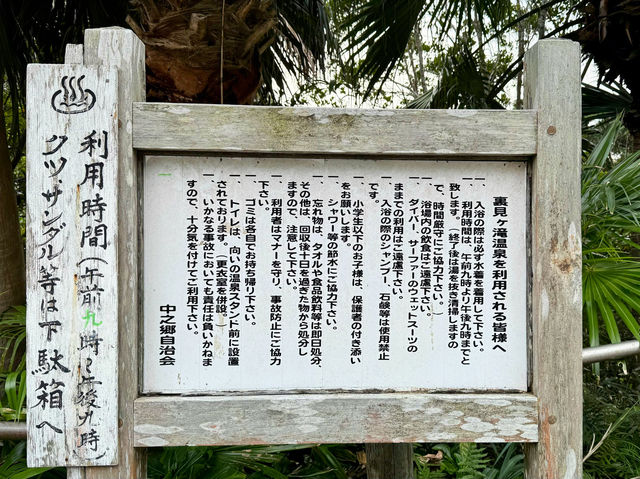 裏見ヶ滝温泉を利用される皆様へ
一、入浴の際は必ず水着を着用して下さい。
一、利用時間は、午前九時より午後九時までと
致します。（終了後は湯を抜き清掃しますの
で、時間厳守にご協力下さい。）
一、浴場内の飲食はご遠慮下さい。
一、ダイバー、サーファーのウェットスーツの
ままでの利用はご遠慮下さい。
一、入浴の際のシャンプー、石鹸等は使用禁止
です。
一、小学生以下のお子様は、保護者の付き添い
をお願いします。
一、シャワー等の節水にご協力下さい。
一、忘れ物は、タオルや食品飲料等は即日処分、
その他は、回収後十日を過ぎた物から処分し
ますので、注意して下さい。
一、利用者はマナーを守り、事故防止にご協力
下さい。
一、ゴミは各自でお持ち帰り下さい。
一、トイレは、向いの温泉スタンド前に設置
されております。（更衣室を併設。）
一、いかなる事故においても責任は負いかねま
すので、十分気を付けてご利用下さい。
中之郷自治会
利用時間（午前九時〜午後九時）
クツサンダル等は下駄箱へ